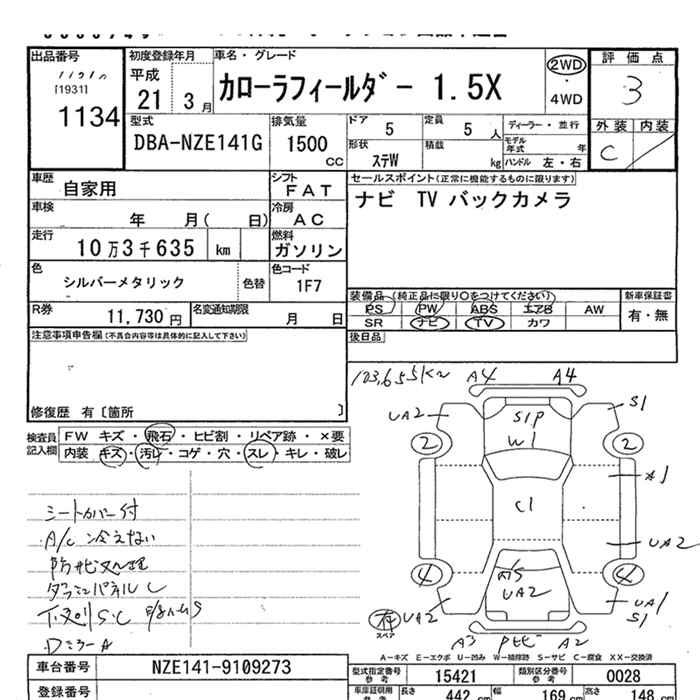 出品番号
[1931]
1134
初度登録年月
平成
21 3月
車名・グレード
カローラフィールダー 1.5X
2WD
・
4WD
評価点
3
外装 内装
C
型式
DBA-NZE141G
排気量
1500 cc
ドア 5
定員 5 人
形状 ステW
積載 kg
ディーラー・並行
モデル年式 年
ハンドル 左・右
車歴 自家用
シフト FAT
車検 年 月( 日)
冷房 AC
走行 10万3千635 km
燃料 ガソリン
色 シルバーメタリック 色替
色コード 1F7
R券 11,730円
名変通知期限 月 日
セールスポイント(正常に機能するものに限ります)
ナビ TV バックカメラ
装備品(純正品に限り○をつけてください)
PS PW ABS エアB AW
SR ナビ TV カワ
新車保証書
有・無
後日品
注意事項申告欄(不具合内容等は具体的に記入して下さい)
修復歴 有〔箇所 〕
検査員記入欄
FW キズ・飛石・ヒビ割・リペア跡・×要
内装 キズ・汚レ・コゲ・穴・スレ・キレ・破レ
シートカバー付
A/C 冷えない
防サビ処理
ダッシュパネルL
下廻りS・C
DミラーA
103,655Km
A4 A4
UA2 S1P S1
W1
2 2
C1 A1
UA2
4 A15 4
UA2
有
スペア
UA2 UA1
S1
A3 A2
A−キズ E−エクボ U−凹み W−補修跡 S−サビ C−腐食 XX−交換済
車台番号 NZE141-9109273
登録番号
型式指定番号 参考 15421
類別区分番号 参考 0028
車庫証明用 参考 長さ 442 cm 幅 169 cm 高さ 148 cm